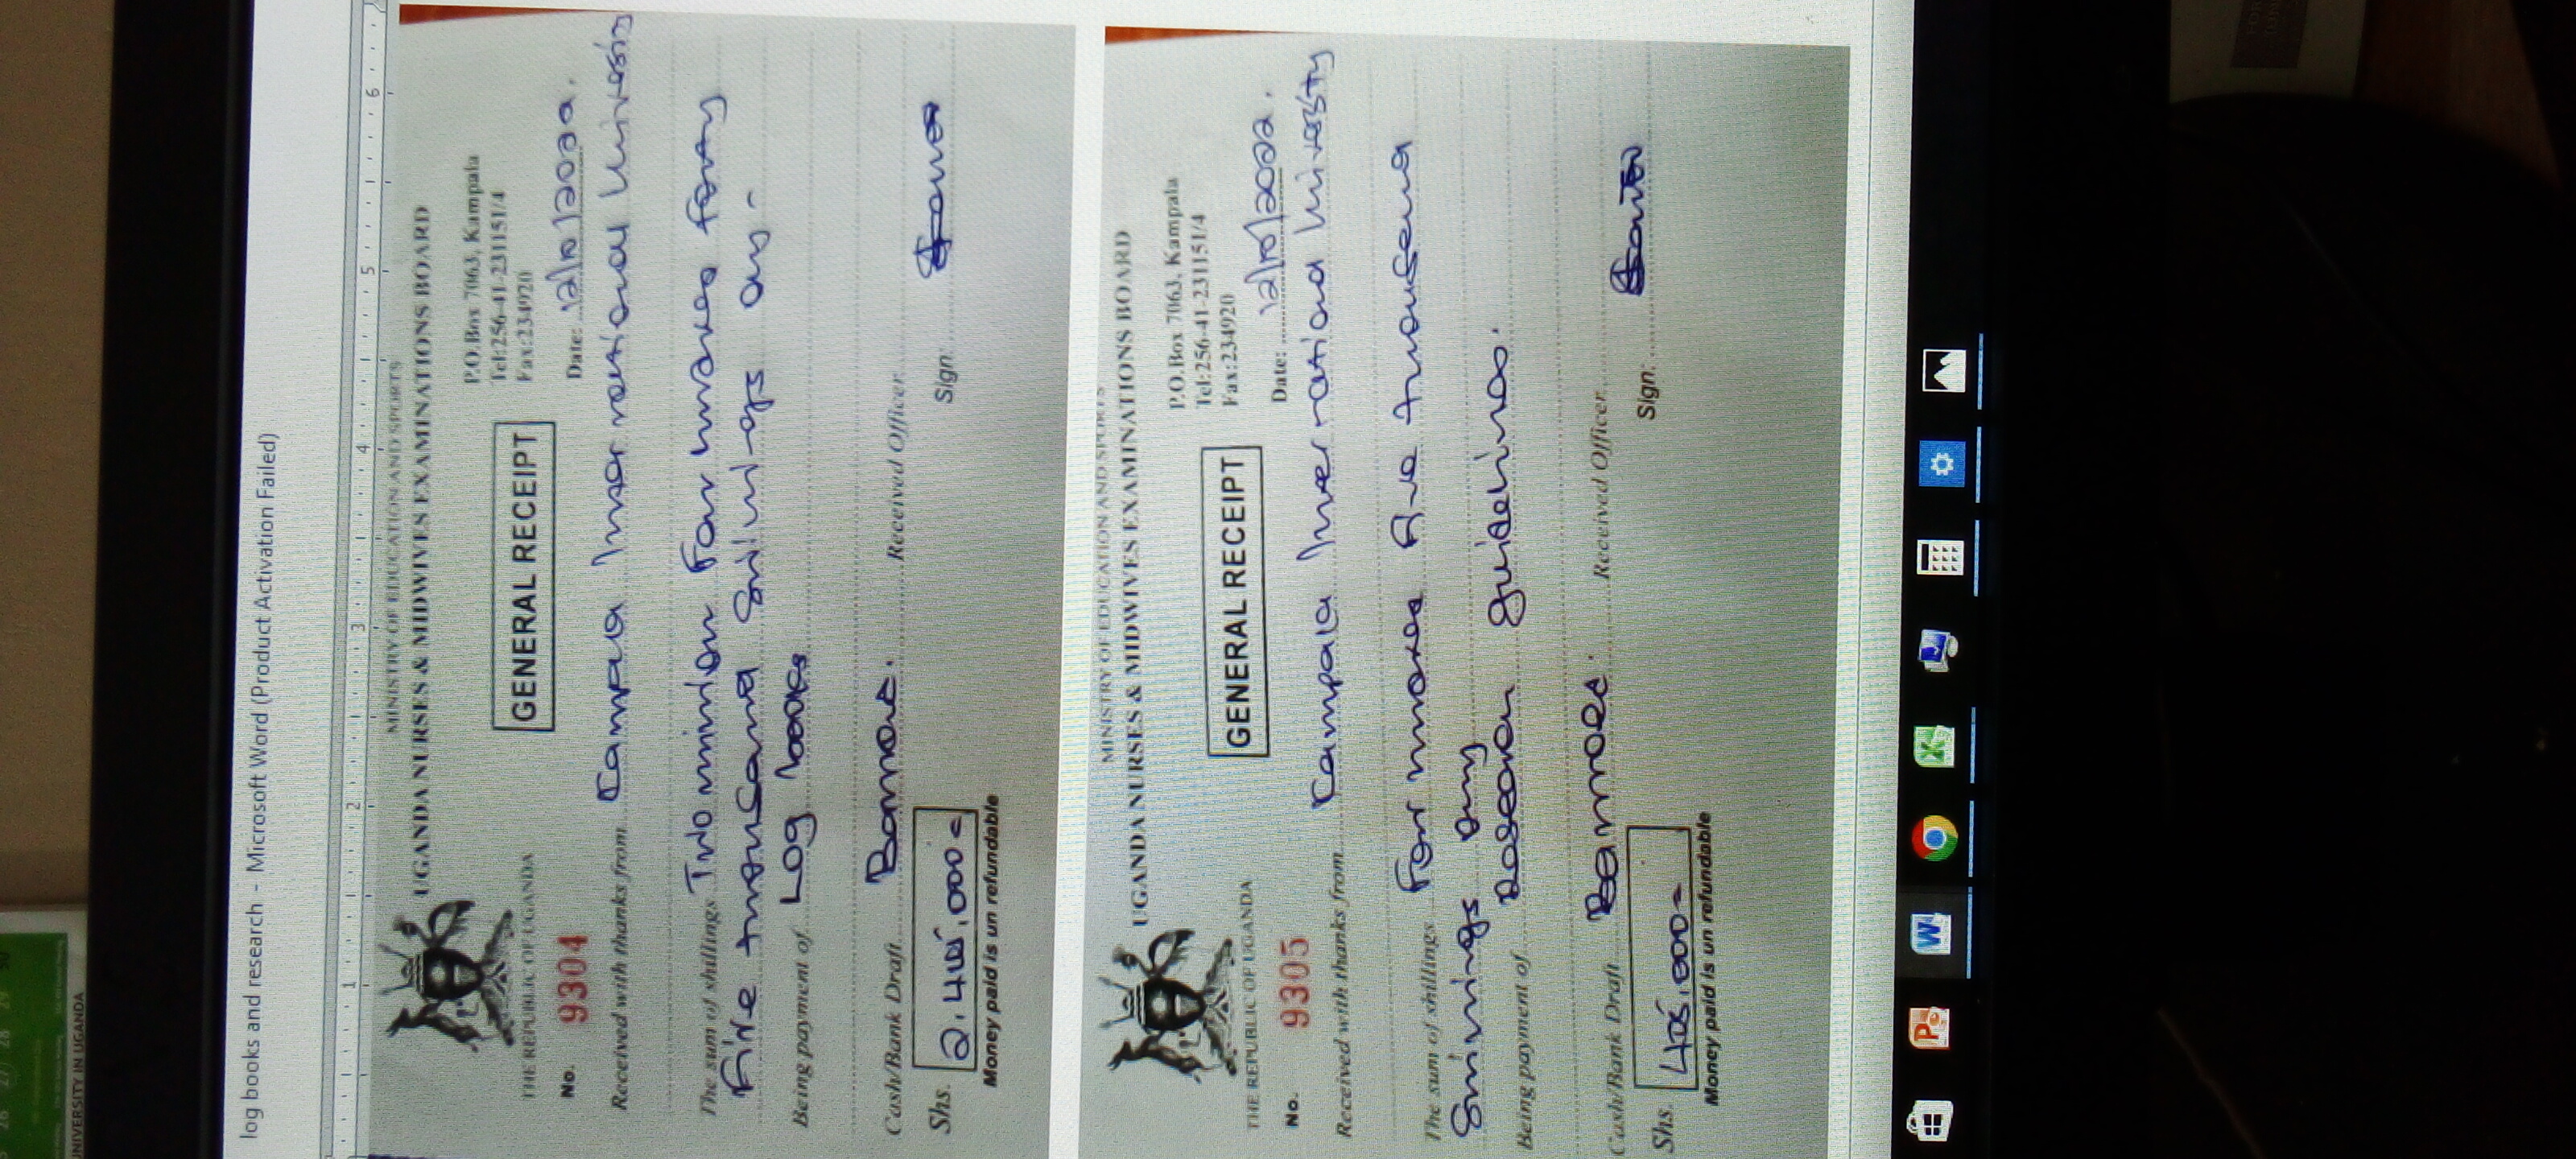 26 27 28 29 30
UNIVERSITY IN UGANDA
log books and research - Microsoft Word (Product Activation Failed)
1 2 3 4 5 6
MINISTRY OF EDUCATION AND SPORTS
UGANDA NURSES & MIDWIVES EXAMINATIONS BOARD
P.O.Box 7063, Kampala
Tel:256-41-231151/4
Fax:234920
THE REPUBLIC OF UGANDA
GENERAL RECEIPT
No. 9304
Date: 12/10/2022.
Received with thanks from Kampala International University
The sum of shillings Two million Four hundred forty
Five thousand Shillings only -
Being payment of Log books
Cash/Bank Draft Received Officer
Shs. 2,445,000= Sign:
Money paid is un refundable
MINISTRY OF EDUCATION AND SPORTS
UGANDA NURSES & MIDWIVES EXAMINATIONS BOARD
P.O.Box 7063, Kampala
Tel:256-41-231151/4
Fax:234920
THE REPUBLIC OF UGANDA
GENERAL RECEIPT
No. 9305
Date: 12/10/2022.
Received with thanks from Kampala International University
The sum of shillings Four hundred Five thousand
Shillings only
Being payment of Research guidelines.
Cash/Bank Draft Received Officer
Shs. 405,000= Sign:
Money paid is un refundable